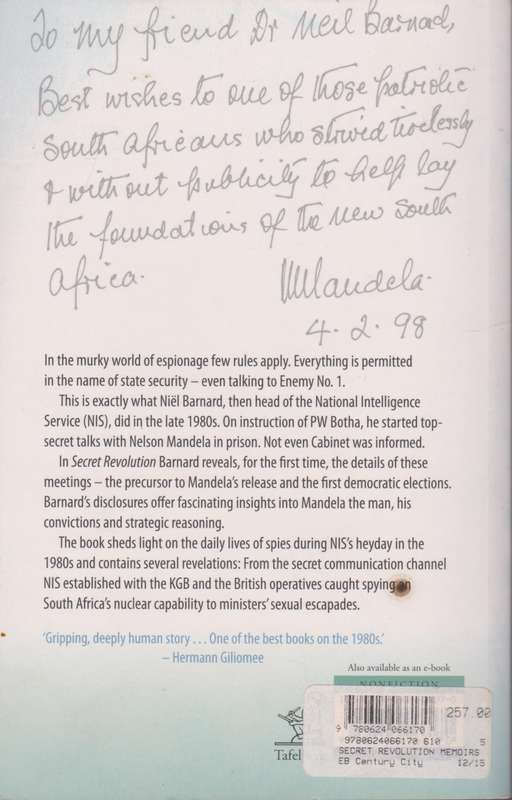 To my friend Dr Neil Barnad,
Best wishes to one of those patriotic
South Africans who strived tirelessly
& without publicity to help lay
the foundations of the new South
Africa.
NMandela.
4.2.98
In the murky world of espionage few rules apply. Everything is permitted
in the name of state security – even talking to Enemy No. 1.
This is exactly what Niël Barnard, then head of the National Intelligence
Service (NIS), did in the late 1980s. On instruction of PW Botha, he started top-
secret talks with Nelson Mandela in prison. Not even Cabinet was informed.
In Secret Revolution Barnard reveals, for the first time, the details of these
meetings – the precursor to Mandela's release and the first democratic elections.
Barnard's disclosures offer fascinating insights into Mandela the man, his
convictions and strategic reasoning.
The book sheds light on the daily lives of spies during NIS's heyday in the
1980s and contains several revelations: From the secret communication channel
NIS established with the KGB and the British operatives caught spying on
South Africa's nuclear capability to ministers' sexual escapades.
'Gripping, deeply human story . . . One of the best books on the 1980s.'
– Hermann Giliomee
Also available as an e-book
NONFICTION
257.00
9 780624 066170
9780624066170 610 5
SECRET REVOLUTION MEMOIRS
EB Century City 12/15
Tafel